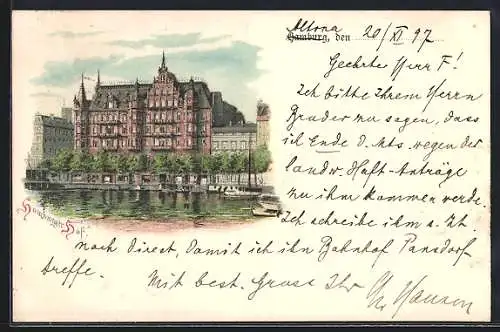 Altona
Hamburg, den 20/XI 97
Geehrter Herr F!
Ich bitte Ihrem Herrn
Bruder zu sagen, dass
ich Ende d. Mts. wegen der
landw. Haft-Anträge
zu ihm kommen werde.
Ich schreibe ihm s. Zt.
noch direct, damit ich ihn Bahnhof Pansdorf
treffe.
Mit best. Gruss Ihr
Hansen
Hamburger Hof.